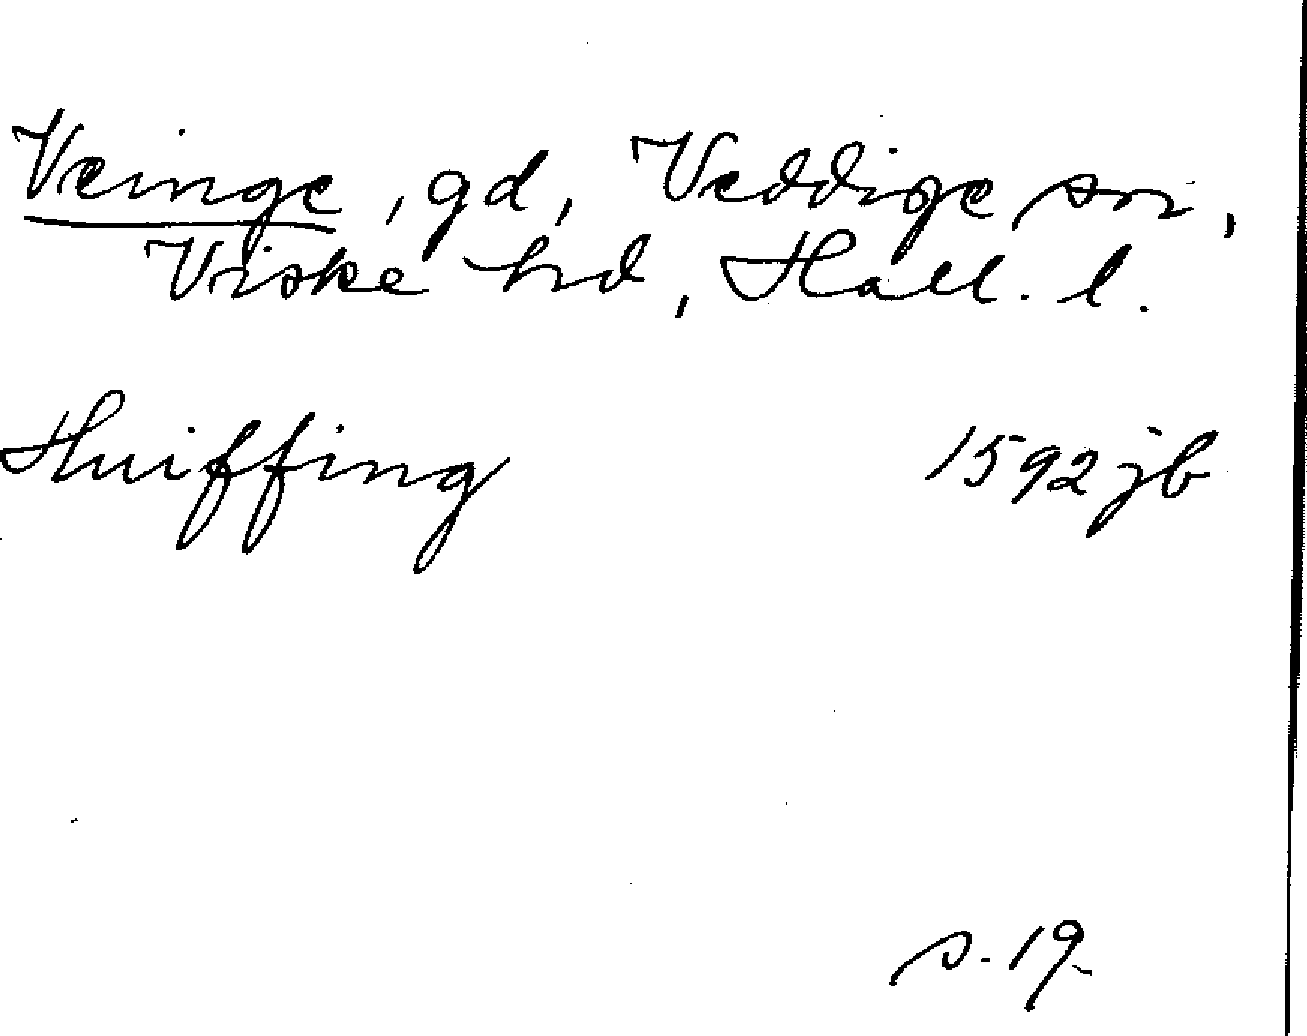 Veinge, gd, Veddige sn,
Viske hd, Hall. l.
Huiffing 1592 jb
s. 19